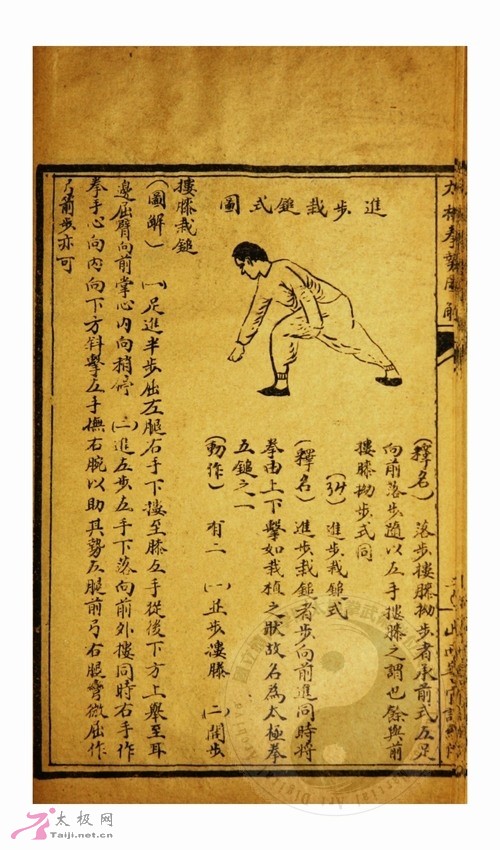 太極拳勢圖解
進步栽鎚式圖
(釋名) 落步摟膝拗步者承前式左足
向前落步隨以左手摟膝之謂也餘與前
摟膝拗步式同
(34) 進步栽鎚式
(釋名) 進步栽鎚者步向前進同時將
拳由上下擊如栽植之狀故名為太極拳
五鎚之一
(動作) 有二 (一)並步摟膝 (二)開步
摟膝栽鎚
(圖解) (一)足進半步屈左腿右手下摟至膝左手從後下方上舉至耳
邊屈臂向前掌心內向稍停 (二)進左步左手下落向前外摟同時右手作
拳手心向內向下方斜擊左手撫右腕以助其勢左腿前弓右腿彎微屈作
弓箭步亦可
太极网
Taiji.net.cn